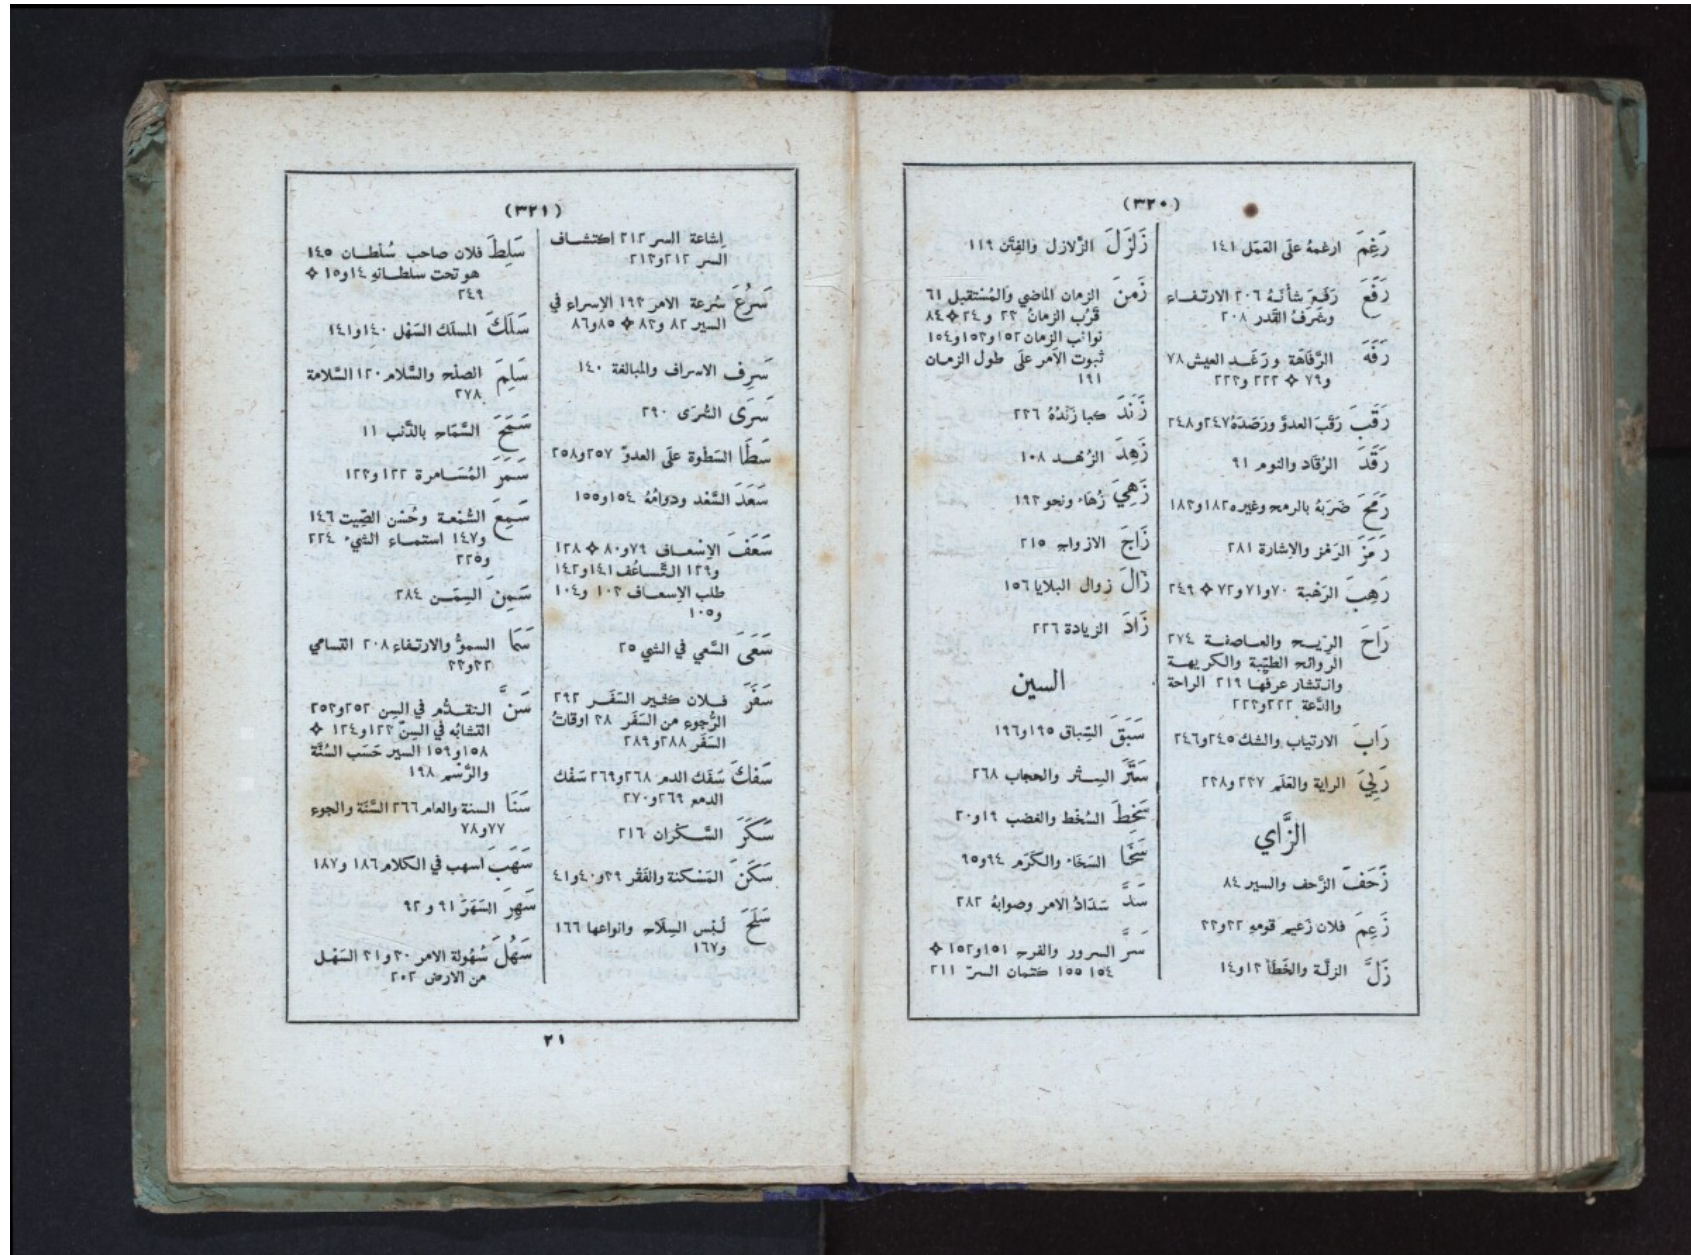 (٣٢٠)
رَغِمَ ارغمهُ على العَمَل ١٤١
رَفَعَ رَفَعَ شأنَهُ ٢٠٦ الارتفاء
وشَرَفُ القَدر ٢٠٨
رَفَهَ الرَّفَاهَة ورَغَد العيش ٧٨
و٧٩ ❖ ٢٢٢ و٢٢٣
رَقَبَ رَقَّبَ العدوّ ورَصَدَهُ ٢٤٧ و٢٤٨
رَقَدَ الرُّقَاد والنوم ٩١
رَمَحَ ضَرَبَهُ بالرمح وغيره ١٨٢ و١٨٣
رَمَزَ الرَمْز والإشارة ٢٨١
رَهِبَ الرَهْبة ٧٠ و٧١ و٧٢ ❖ ٢٤٩
رَاحَ الرّيح والعاصفة ٢٧٤
الروائح الطيّبة والكريهة
وانتشار عرفها ٢١٩ الراحة
والدَّعة ٢٢٢ و٢٢٣
رَابَ الارتياب والشك ٢٤٥ و٢٤٦
رَيِيَ الراية والعَلَم ٢٣٧ و٢٣٨
الزَّاي
زَحَفَ الزَّحف والسير ٨٤
زَعِمَ فلان زَعيم قومهِ ٢٢ و٢٣
زَلَّ الزلَّة والخَطَأ ١٣ و١٤
زَلزَلَ الزَّلازل والفِتَن ١١٩
زَمِنَ الزمان الماضي والمُسْتقبل ٦١
قُرْب الزمان ٢٣ و٢٤ ❖ ٨٤
نوائب الزمان ١٥٢ و١٥٣ و١٥٤
ثبوت الأمر على طول الزمان
١٩١
زَنَدَ كبا زَنْدُهُ ٢٣٦
زَهِدَ الزُهد ١٠٨
زَهِيَ زُهَاء ونحو ١٩٣
زَاجَ الازواج ٢١٥
زَالَ زوال البلايا ١٥٦
زَادَ الزيادة ٢٢٦
السين
سَبَقَ السِّباق ١٩٥ و١٩٦
سَتَرَ السِتْر والحجاب ٢٦٨
سَخِطَ السُخْط والغضب ١٩ و٢٠
سَخَا السَخَاء والكَرَم ٩٤ و٩٥
سَدَّ سَدَادُ الامر وصوابهُ ٢٨٢
سَرَّ السرور والفرح ١٥١ و١٥٢ ❖
١٥٤ ١٥٥ كتمان السرّ ٢١١
(٣٢١)
إشاعة السر ٢١٢ اكتشاف
السر ٢١٢ و٢١٣
سَرُعَ سُرعة الامر ١٩٣ الإسراء في
السير ٨٢ و٨٣ ❖ ٨٥ و٨٦
سَرِف الاسراف والمبالغة ١٤٠
سَرَى السُّرَى ٢٩٠
سَطَا السَطْوة على العدوّ ٢٥٧ و٢٥٨
سَعَدَ السَّعْد ودوامُهُ ١٥٤ و١٥٥
سَعَفَ الإسْعاف ٧٩ و٨٠ ❖ ١٢٨
و١٢٩ التَّساعُف ١٤١ و١٤٢
طلب الإسعاف ١٠٣ و١٠٤
و١٠٥
سَعَى السَّعي في الشي ٢٥
سَفَرَ فلان كثير السَفَر ٢٩٢
الرُجوع من السَفَر ٣٨ اوقاتُ
السَفَر ٢٨٨ و٢٨٩
سَفَكَ سَفْك الدم ٢٦٨ و٢٦٩ سَفْك
الدمع ٢٦٩ و٢٧٠
سَكَرَ السَّكران ٢١٦
سَكَنَ المَسْكنة والفَقْر ٣٩ و٤٠ و٤١
سَلَحَ لُبْس السِلَاح وانواعها ١٦٦
و١٦٧
سَلِطَ فلان صاحب سُلطان ١٤٥
هو تحت سلطانهِ ١٤ و١٥ ❖
٢٤٩
سَلَكَ المسلَك السَهْل ١٤٠ و١٤١
سَلِمَ الصلْح والسَّلام ١٢٠ السَّلامة
٢٧٨
سَمَحَ السَّمَاح بالذَّنب ١١
سَمَرَ المُسَامرة ١٢٢ و١٢٣
سَمِعَ السُّمْعة وحُسْن الصّيت ١٤٦
و١٤٧ استماء الشيء ٢٢٤
و٢٢٥
سَمِنَ السِمَن ٢٨٤
سَمَا السموُّ والارتفاء ٢٠٨ التسامي
٢٢ و٢٣
سَنَّ التقدُّم في السِن ٢٥٢ و٢٥٣
التشابُه في السِنّ ١٢٣ و١٢٤ ❖
١٥٨ و١٥٩ السير حَسَب السُنَّة
والرَّسْم ١٩٨
سَنَا السنة والعام ٢٦٦ السَّنَة والجوع
٧٧ و٧٨
سَهَبَ اسهب في الكلام ١٨٦ و١٨٧
سَهِرَ السَهَرَ ٩١ و٩٢
سَهُلَ سُهُولة الامر ٣٠ و٣١ السَهْل
من الارض ٢٠٢
٢١